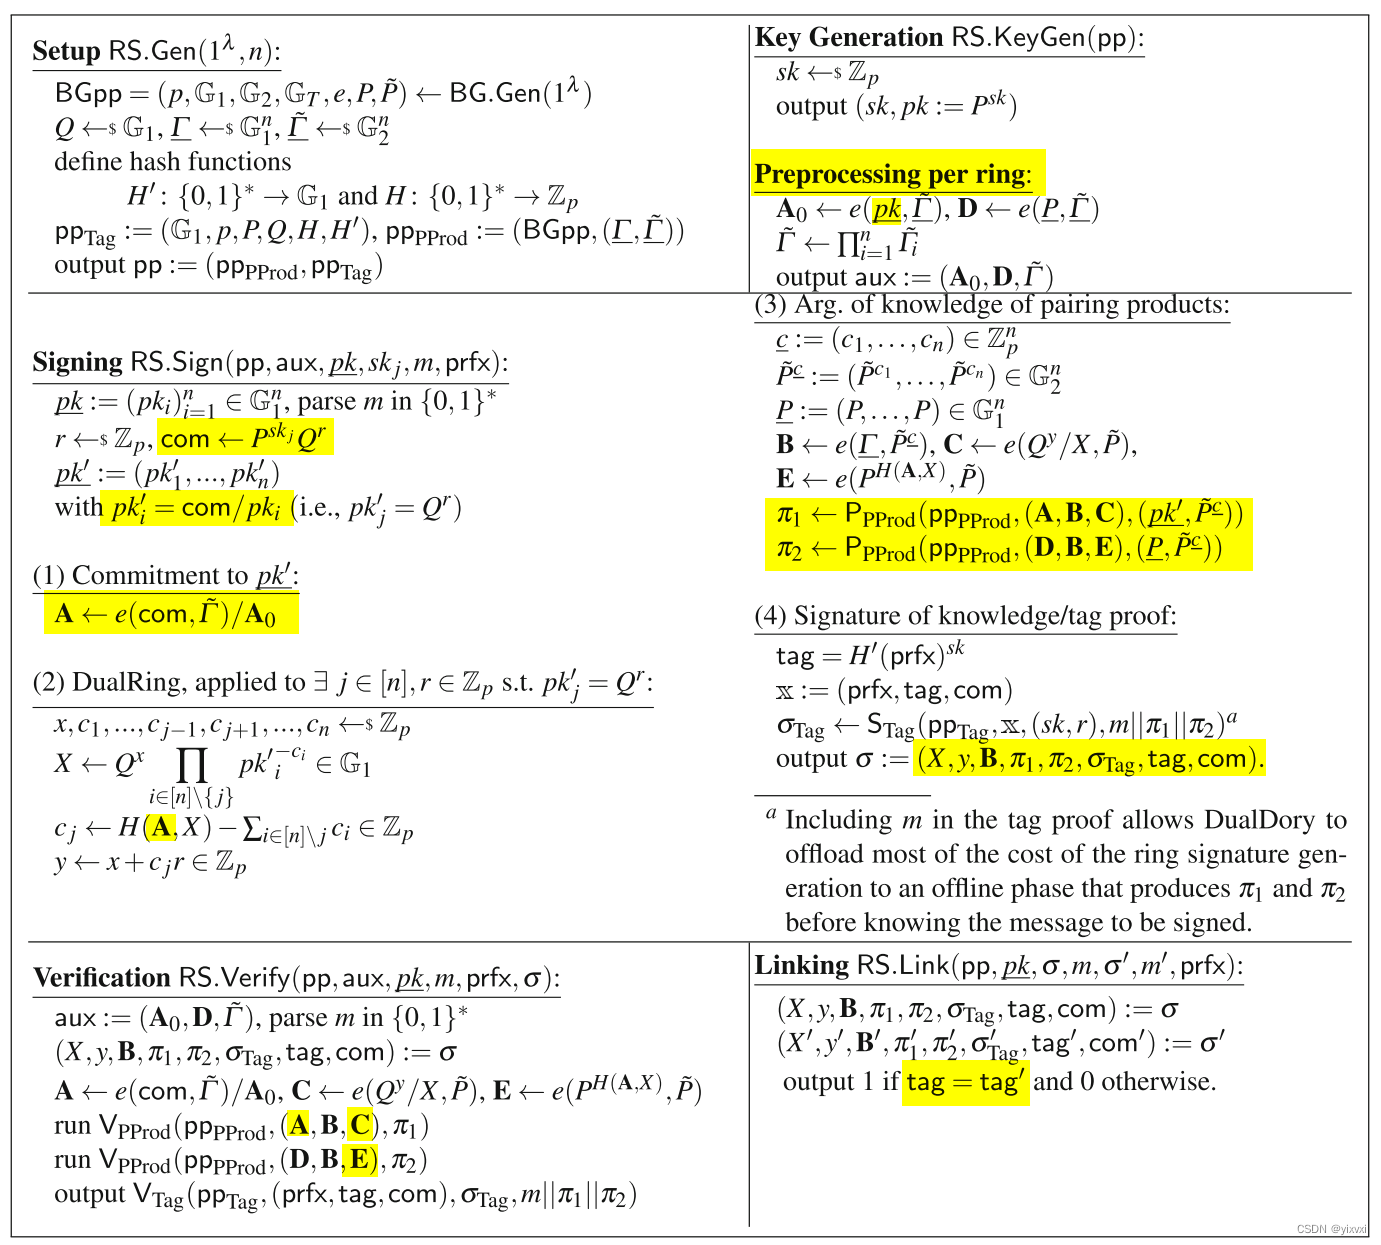 Setup RS.Gen(1^λ, n):
BGpp = (p, 𝔾₁, 𝔾₂, 𝔾_T, e, P, P̃) ← BG.Gen(1^λ)
Q ←$ 𝔾₁, Γ̲ ←$ 𝔾₁ⁿ, Γ̲̃ ←$ 𝔾₂ⁿ
define hash functions
H′: {0,1}* → 𝔾₁ and H: {0,1}* → ℤ_p
pp_Tag := (𝔾₁, p, P, Q, H, H′), pp_PProd := (BGpp, (Γ̲, Γ̲̃))
output pp := (pp_PProd, pp_Tag)
Key Generation RS.KeyGen(pp):
sk ←$ ℤ_p
output (sk, pk := P^sk)
Preprocessing per ring:
A₀ ← e(p̲k̲, Γ̲̃), D ← e(P̲, Γ̲̃)
Γ̃ ← ∏ⁿ_{i=1} Γ̃_i
output aux := (A₀, D, Γ̃)
Signing RS.Sign(pp, aux, p̲k̲, sk_j, m, prfx):
p̲k̲ := (pk_i)ⁿ_{i=1} ∈ 𝔾₁ⁿ, parse m in {0,1}*
r ←$ ℤ_p, com ← P^{sk_j}Q^r
p̲k̲′ := (pk′₁, ..., pk′_n)
with pk′_i = com/pk_i (i.e., pk′_j = Q^r)
(1) Commitment to p̲k̲′:
A ← e(com, Γ̃)/A₀
(2) DualRing, applied to ∃ j ∈ [n], r ∈ ℤ_p s.t. pk′_j = Q^r:
x, c₁, ..., c_{j−1}, c_{j+1}, ..., c_n ←$ ℤ_p
X ← Q^x ∏_{i∈[n]\{j}} pk′_i^{−c_i} ∈ 𝔾₁
c_j ← H(A, X) − ∑_{i∈[n]\j} c_i ∈ ℤ_p
y ← x + c_j r ∈ ℤ_p
(3) Arg. of knowledge of pairing products:
c̲ := (c₁, …, c_n) ∈ ℤ_pⁿ
P̃^c̲ := (P̃^{c₁}, …, P̃^{c_n}) ∈ 𝔾₂ⁿ
P̲ := (P, …, P) ∈ 𝔾₁ⁿ
B ← e(Γ̲, P̃^c̲), C ← e(Q^y/X, P̃),
E ← e(P^{H(A,X)}, P̃)
π₁ ← P_PProd(pp_PProd, (A, B, C), (p̲k̲′, P̃^c̲))
π₂ ← P_PProd(pp_PProd, (D, B, E), (P̲, P̃^c̲))
(4) Signature of knowledge/tag proof:
tag = H′(prfx)^sk
𝕩 := (prfx, tag, com)
σ_Tag ← S_Tag(pp_Tag, 𝕩, (sk, r), m||π₁||π₂)^a
output σ := (X, y, B, π₁, π₂, σ_Tag, tag, com).
a Including m in the tag proof allows DualDory to
offload most of the cost of the ring signature gen-
eration to an offline phase that produces π₁ and π₂
before knowing the message to be signed.
Verification RS.Verify(pp, aux, p̲k̲, m, prfx, σ):
aux := (A₀, D, Γ̃), parse m in {0,1}*
(X, y, B, π₁, π₂, σ_Tag, tag, com) := σ
A ← e(com, Γ̃)/A₀, C ← e(Q^y/X, P̃), E ← e(P^{H(A,X)}, P̃)
run V_PProd(pp_PProd, (A, B, C), π₁)
run V_PProd(pp_PProd, (D, B, E), π₂)
output V_Tag(pp_Tag, (prfx, tag, com), σ_Tag, m||π₁||π₂)
Linking RS.Link(pp, p̲k̲, σ, m, σ′, m′, prfx):
(X, y, B, π₁, π₂, σ_Tag, tag, com) := σ
(X′, y′, B′, π′₁, π′₂, σ′_Tag, tag′, com′) := σ′
output 1 if tag = tag′ and 0 otherwise.
CSDN @yixvxi